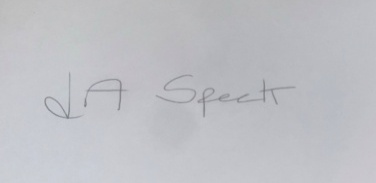 A Speck